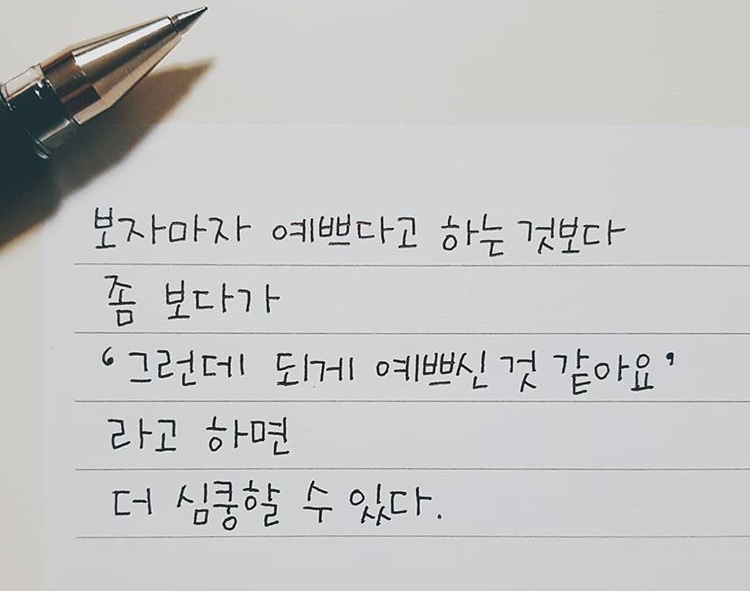 보자마자 예쁘다고 하는 것보다
좀 보다가
'그런데 되게 예쁘신 것 같아요'
라고 하면
더 심쿵할 수 있다.